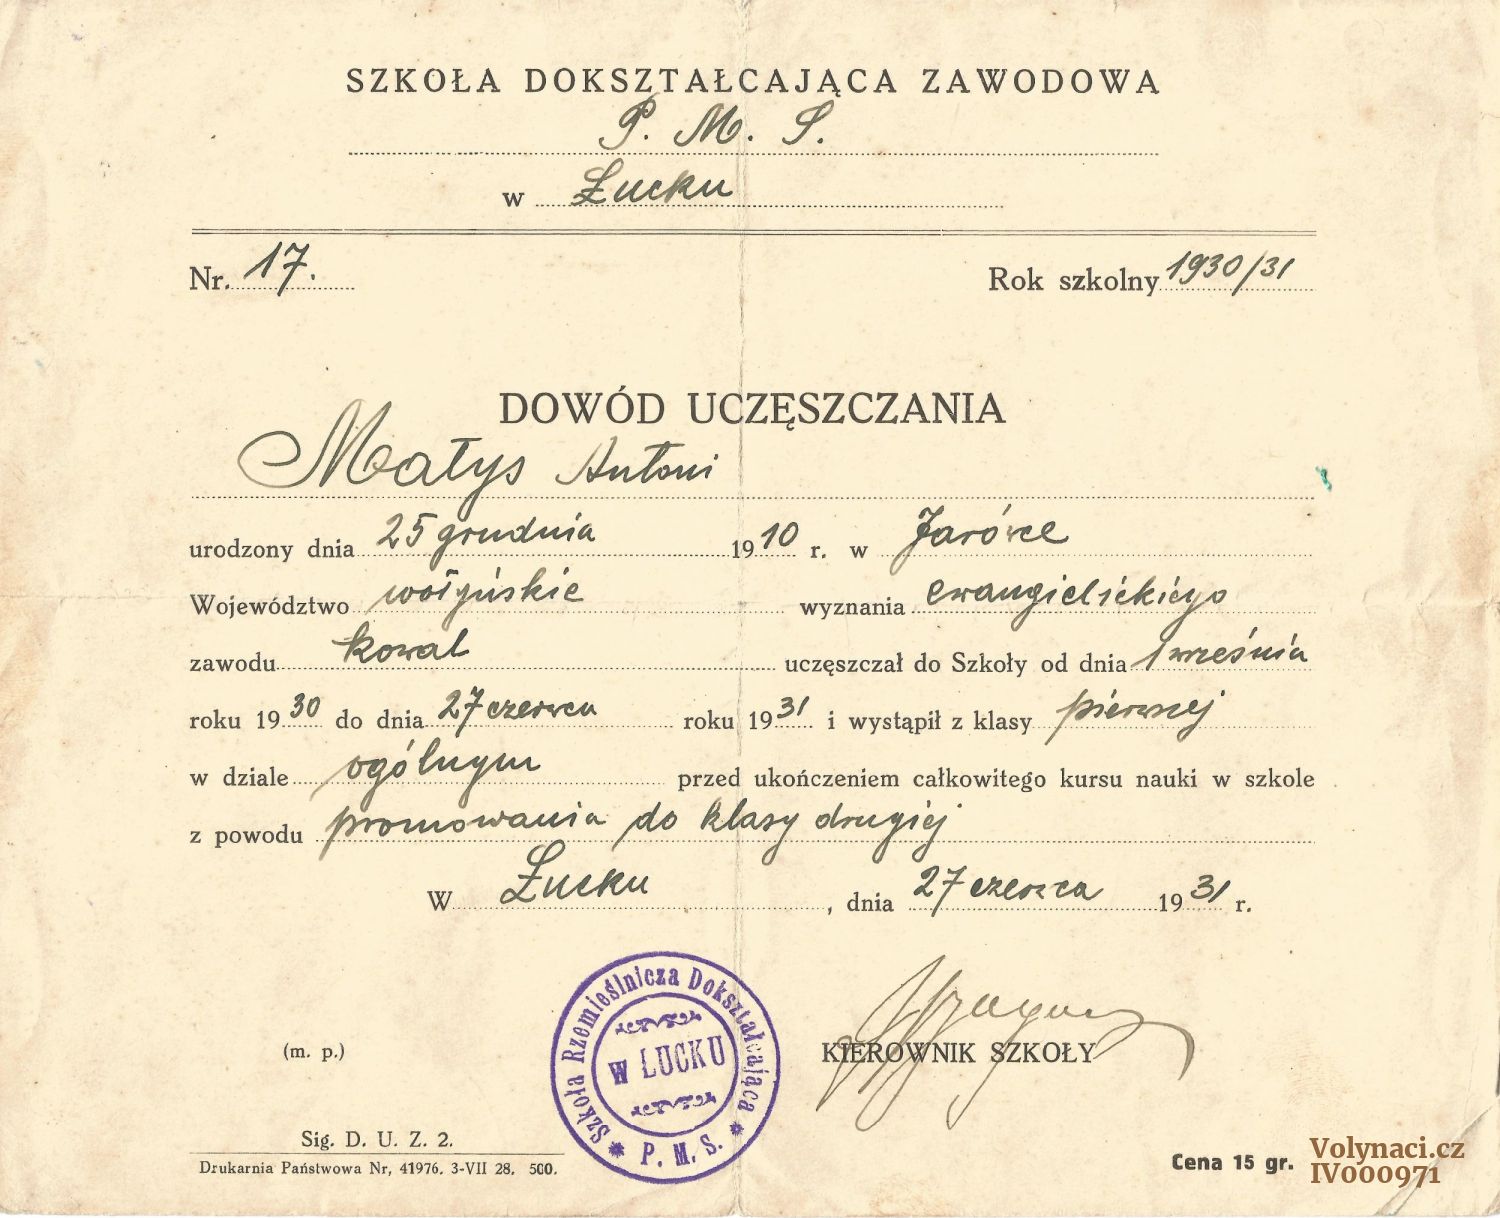 SZKOŁA DOKSZTAŁCAJĄCA ZAWODOWA
P. M. S.
w Łucku
Nr. 17. Rok szkolny 1930/31
DOWÓD UCZĘSZCZANIA
Małys Antoni
urodzony dnia 25 grudnia 1910 r. w Jarówce
Województwo wołyńskie wyznania ewangielickiego
zawodu kowal uczęszczał do Szkoły od dnia 1 września
roku 1930 do dnia 27 czerwca roku 1931 i wystąpił z klasy pierwszej
w dziale ogólnym przed ukończeniem całkowitego kursu nauki w szkole
z powodu promowania do klasy drugiej
W Łucku, dnia 27 czerwca 1931 r.
Szkoła Rzemieślnicza Dokształcająca
W ŁUCKU
P. M. S.
(m. p.)
KIEROWNIK SZKOŁY
Sig. D. U. Z. 2.
Drukarnia Państwowa Nr, 41976. 3-VII 28. 500.
Cena 15 gr.
Volynaci.cz
IV000971